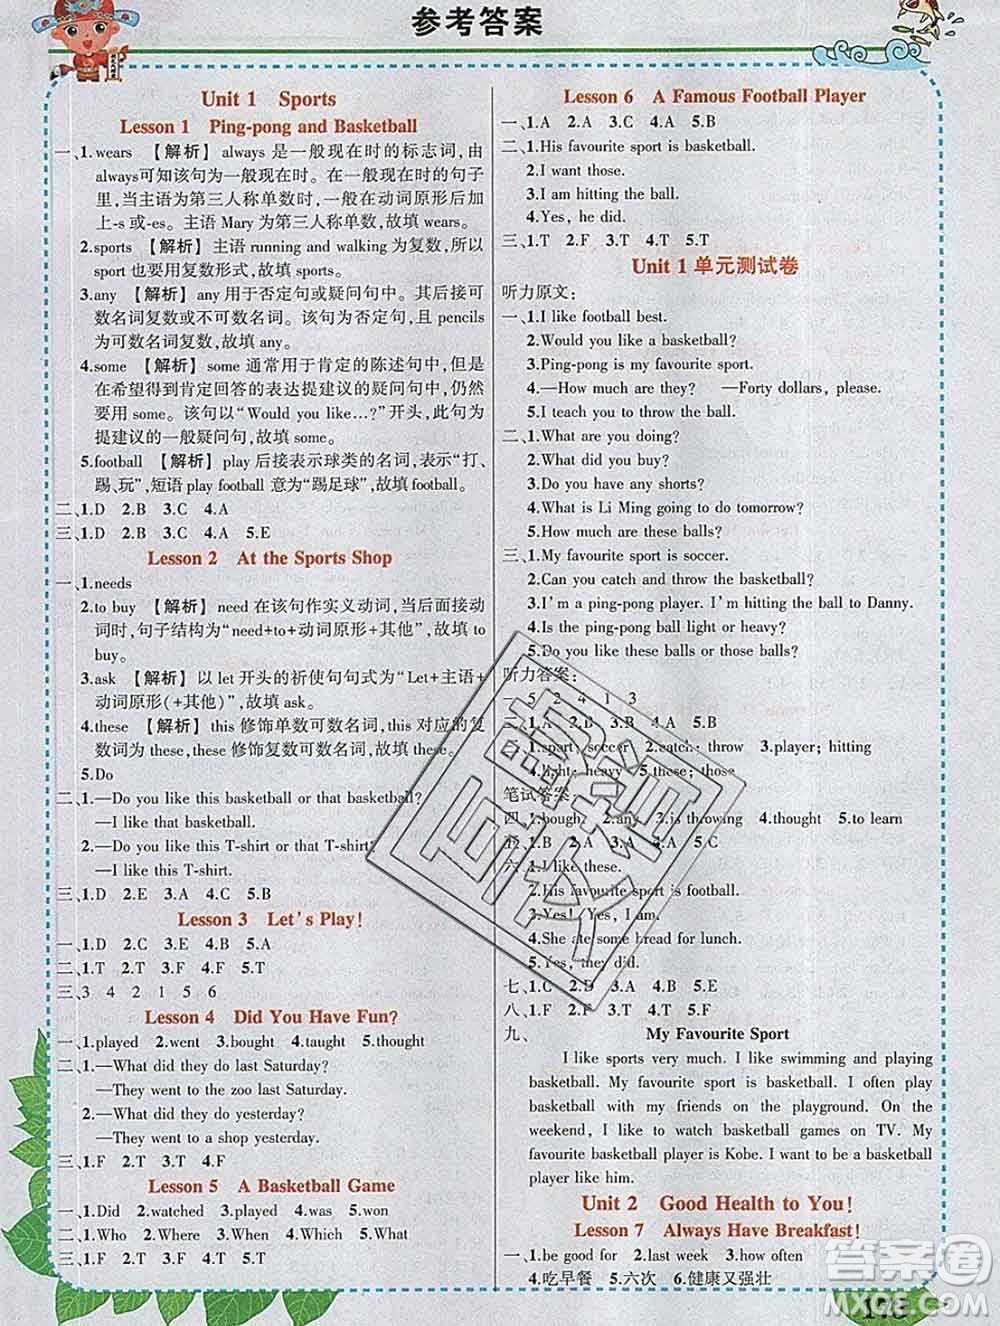 参考答案
Unit 1 Sports
Lesson 1 Ping-pong and Basketball
一、1.wears 【解析】always 是一般现在时的标志词，由
always可知该句为一般现在时。在一般现在时的句子
里，当主语为第三人称单数时，一般在动词原形后加
上-s或-es。主语 Mary 为第三人称单数，故填 wears。
2.sports 【解析】主语 running and walking 为复数，所以
sport 也要用复数形式，故填 sports。
3.any 【解析】any 用于否定句或疑问句中。其后接可
数名词复数或不可数名词。该句为否定句，且 pencils
为可数名词复数，故填 any。
4.some 【解析】some 通常用于肯定的陈述句中，但是
在希望得到肯定回答的表达提建议的疑问句中，仍然
要用 some。该句以“Would you like…?”开头，此句为
提建议的一般疑问句，故填 some。
5.football 【解析】play 后接表示球类的名词，表示“打、
踢、玩”，短语 play football 意为“踢足球”，故填 football。
二、1.D 2.B 3.C 4.A
三、1.D 2.C 3.B 4.A 5.E
Lesson 2 At the Sports Shop
一、1.needs
2.to buy 【解析】need 在该句作实义动词，当后面接动
词时，句子结构为“need+to+动词原形+其他”，故填 to
buy。
3.ask 【解析】以 let 开头的祈使句句式为“Let+主语+
动词原形(+其他)”，故填 ask。
4.these 【解析】this 修饰单数可数名词，this 对应的复
数词为 these，these 修饰复数可数名词，故填 these。
5.Do
二、1.—Do you like this basketball or that basketball?
—I like that basketball.
2.—Do you like this T-shirt or that T-shirt?
—I like this T-shirt.
三、1.D 2.E 3.A 4.C 5.B
Lesson 3 Let's Play!
一、1.D 2.C 3.E 4.B 5.A
二、1.T 2.T 3.F 4.F 5.T
三、3 4 2 1 5 6
Lesson 4 Did You Have Fun?
一、1.played 2.went 3.bought 4.taught 5.thought
二、1.—What did they do last Saturday?
—They went to the zoo last Saturday.
2.—What did they do yesterday?
—They went to a shop yesterday.
三、1.F 2.T 3.T 4.F 5.T
Lesson 5 A Basketball Game
一、1.Did 2.watched 3.played 4.was 5.won
二、1.Who 2.Where 3.What 4.When 5.How
三、1.F 2.T 3.F 4.T 5.T
Lesson 6 A Famous Football Player
一、1.A 2.A 3.C 4.A 5.B
二、1.His favourite sport is basketball.
2.I want those.
3.I am hitting the ball.
4.Yes, he did.
三、1.T 2.F 3.T 4.T 5.T
Unit 1 单元测试卷
听力原文：
一、1.I like football best.
2.Would you like a basketball?
3.Ping-pong is my favourite sport.
4.—How much are they? —Forty dollars, please.
5.I teach you to throw the ball.
二、1.What are you doing?
2.What did you buy?
3.Do you have any shorts?
4.What is Li Ming going to do tomorrow?
5.How much are these balls?
三、1.My favourite sport is soccer.
2.Can you catch and throw the basketball?
3.I'm a ping-pong player. I'm hitting the ball to Danny.
4.Is the ping-pong ball light or heavy?
5.Do you like these balls or those balls?
听力答案：
一、5 2 4 1 3
二、1.A 2.A 3.B 4.A 5.B
三、1.sport; soccer 2.catch; throw 3.player; hitting
4.light; heavy 5.these; those
笔试答案：
四、1.bought 2.any 3.is throwing 4.thought 5.to learn
五、1.B 2.A 3.A 4.A 5.C
六、1.I like these.
2.His favourite sport is football.
3.Yes! /Yes, I am.
4.She ate some bread for lunch.
5.Yes, they did.
七、1.C 2.D 3.A 4.B 5.E
八、1.F 2.F 3.T 4.T 5.F
九、 My Favourite Sport
I like sports very much. I like swimming and playing
basketball. My favourite sport is basketball. I often play
basketball with my friends on the playground. On the
weekend, I like to watch basketball games on TV. My
favourite basketball player is Kobe. I want to be a basketball
player like him.
Unit 2 Good Health to You!
Lesson 7 Always Have Breakfast!
一、1.be good for 2.last week 3.how often
4.吃早餐 5.六次 6.健康又强壮
175
答案圈
MXQE.COM